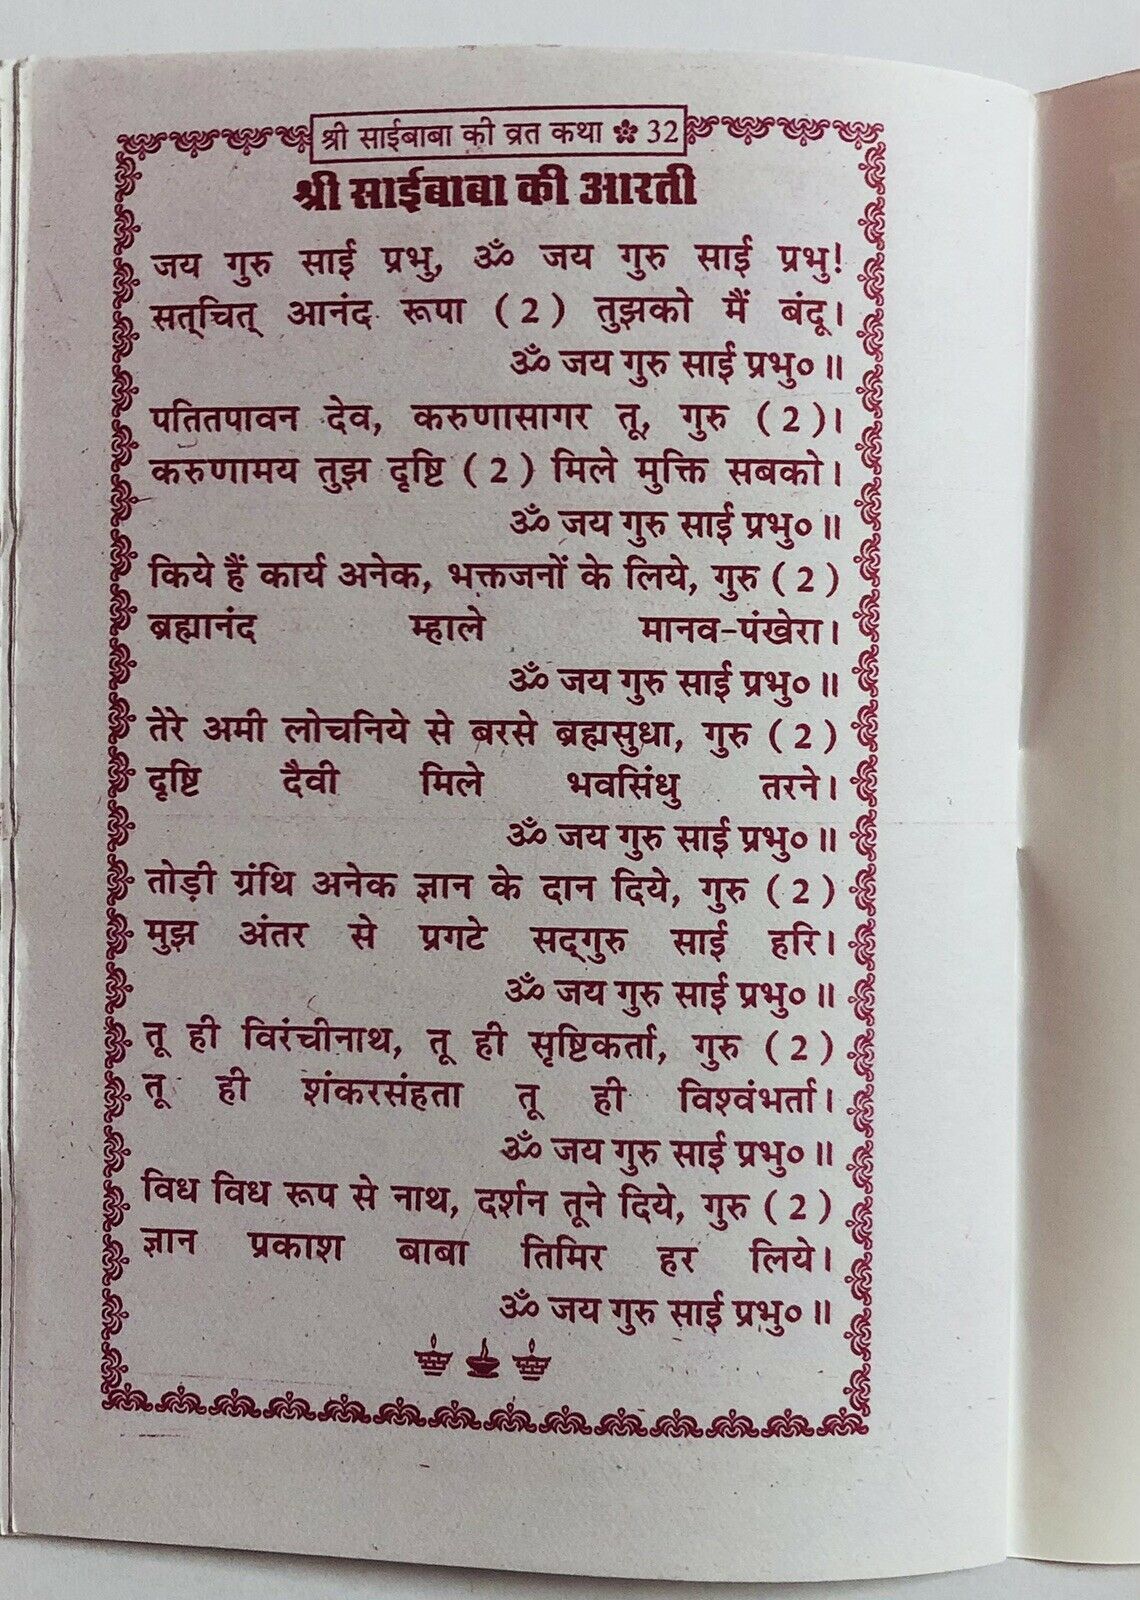 श्री साईबाबा की व्रत कथा ❀ 32
श्री साईबाबा की आरती
जय गुरु साई प्रभु, ॐ जय गुरु साई प्रभु!
सत्‌चित् आनंद रूपा (2) तुझको मैं बंदू।
ॐ जय गुरु साई प्रभु० ॥
पतितपावन देव, करुणासागर तू, गुरु (2)।
करुणामय तुझ दृष्टि (2) मिले मुक्ति सबको।
ॐ जय गुरु साई प्रभु० ॥
किये हैं कार्य अनेक, भक्तजनों के लिये, गुरु (2)
ब्रह्मानंद म्हाले मानव-पंखेरा।
ॐ जय गुरु साई प्रभु० ॥
तेरे अमी लोचनिये से बरसे ब्रह्मसुधा, गुरु (2)
दृष्टि दैवी मिले भवसिंधु तरने।
ॐ जय गुरु साई प्रभु० ॥
तोड़ी ग्रंथि अनेक ज्ञान के दान दिये, गुरु (2)
मुझ अंतर से प्रगटे सद्‌गुरु साई हरि।
ॐ जय गुरु साई प्रभु० ॥
तू ही विरंचीनाथ, तू ही सृष्टिकर्ता, गुरु (2)
तू ही शंकरसंहता तू ही विश्वंभर्ता।
ॐ जय गुरु साई प्रभु० ॥
विध विध रूप से नाथ, दर्शन तूने दिये, गुरु (2)
ज्ञान प्रकाश बाबा तिमिर हर लिये।
ॐ जय गुरु साई प्रभु० ॥